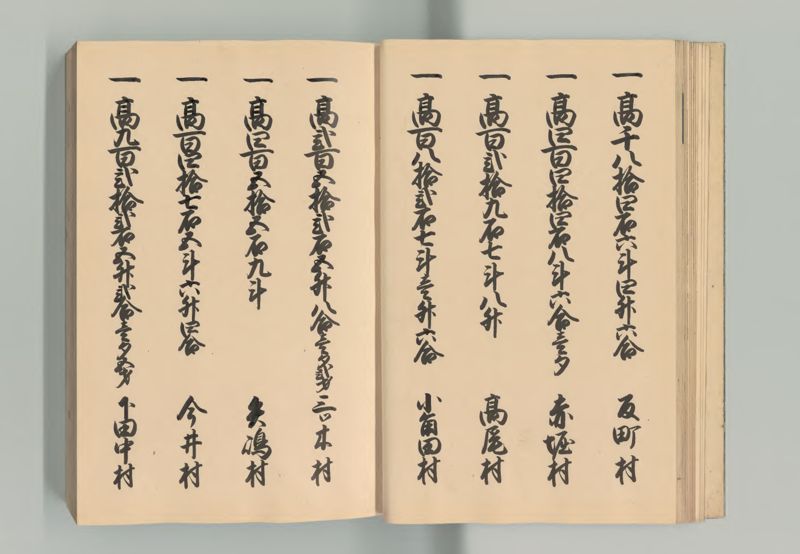 一 高千八拾四石六斗四升六合 反町村
一 高四百四拾四石八斗六合壱夕 赤堀村
一 高百弐拾九石七斗八升 高尾村
一 高百八拾弐石七斗壱升六合 小角田村
一 高弐百五拾弐石五升八合壱夕弐才 三ツ木村
一 高四百五拾五石九斗 矢嶋村
一 高百四拾七石五斗六升四合 今井村
一 高九百弐拾弐石五升弐合壱夕五才 下田中村